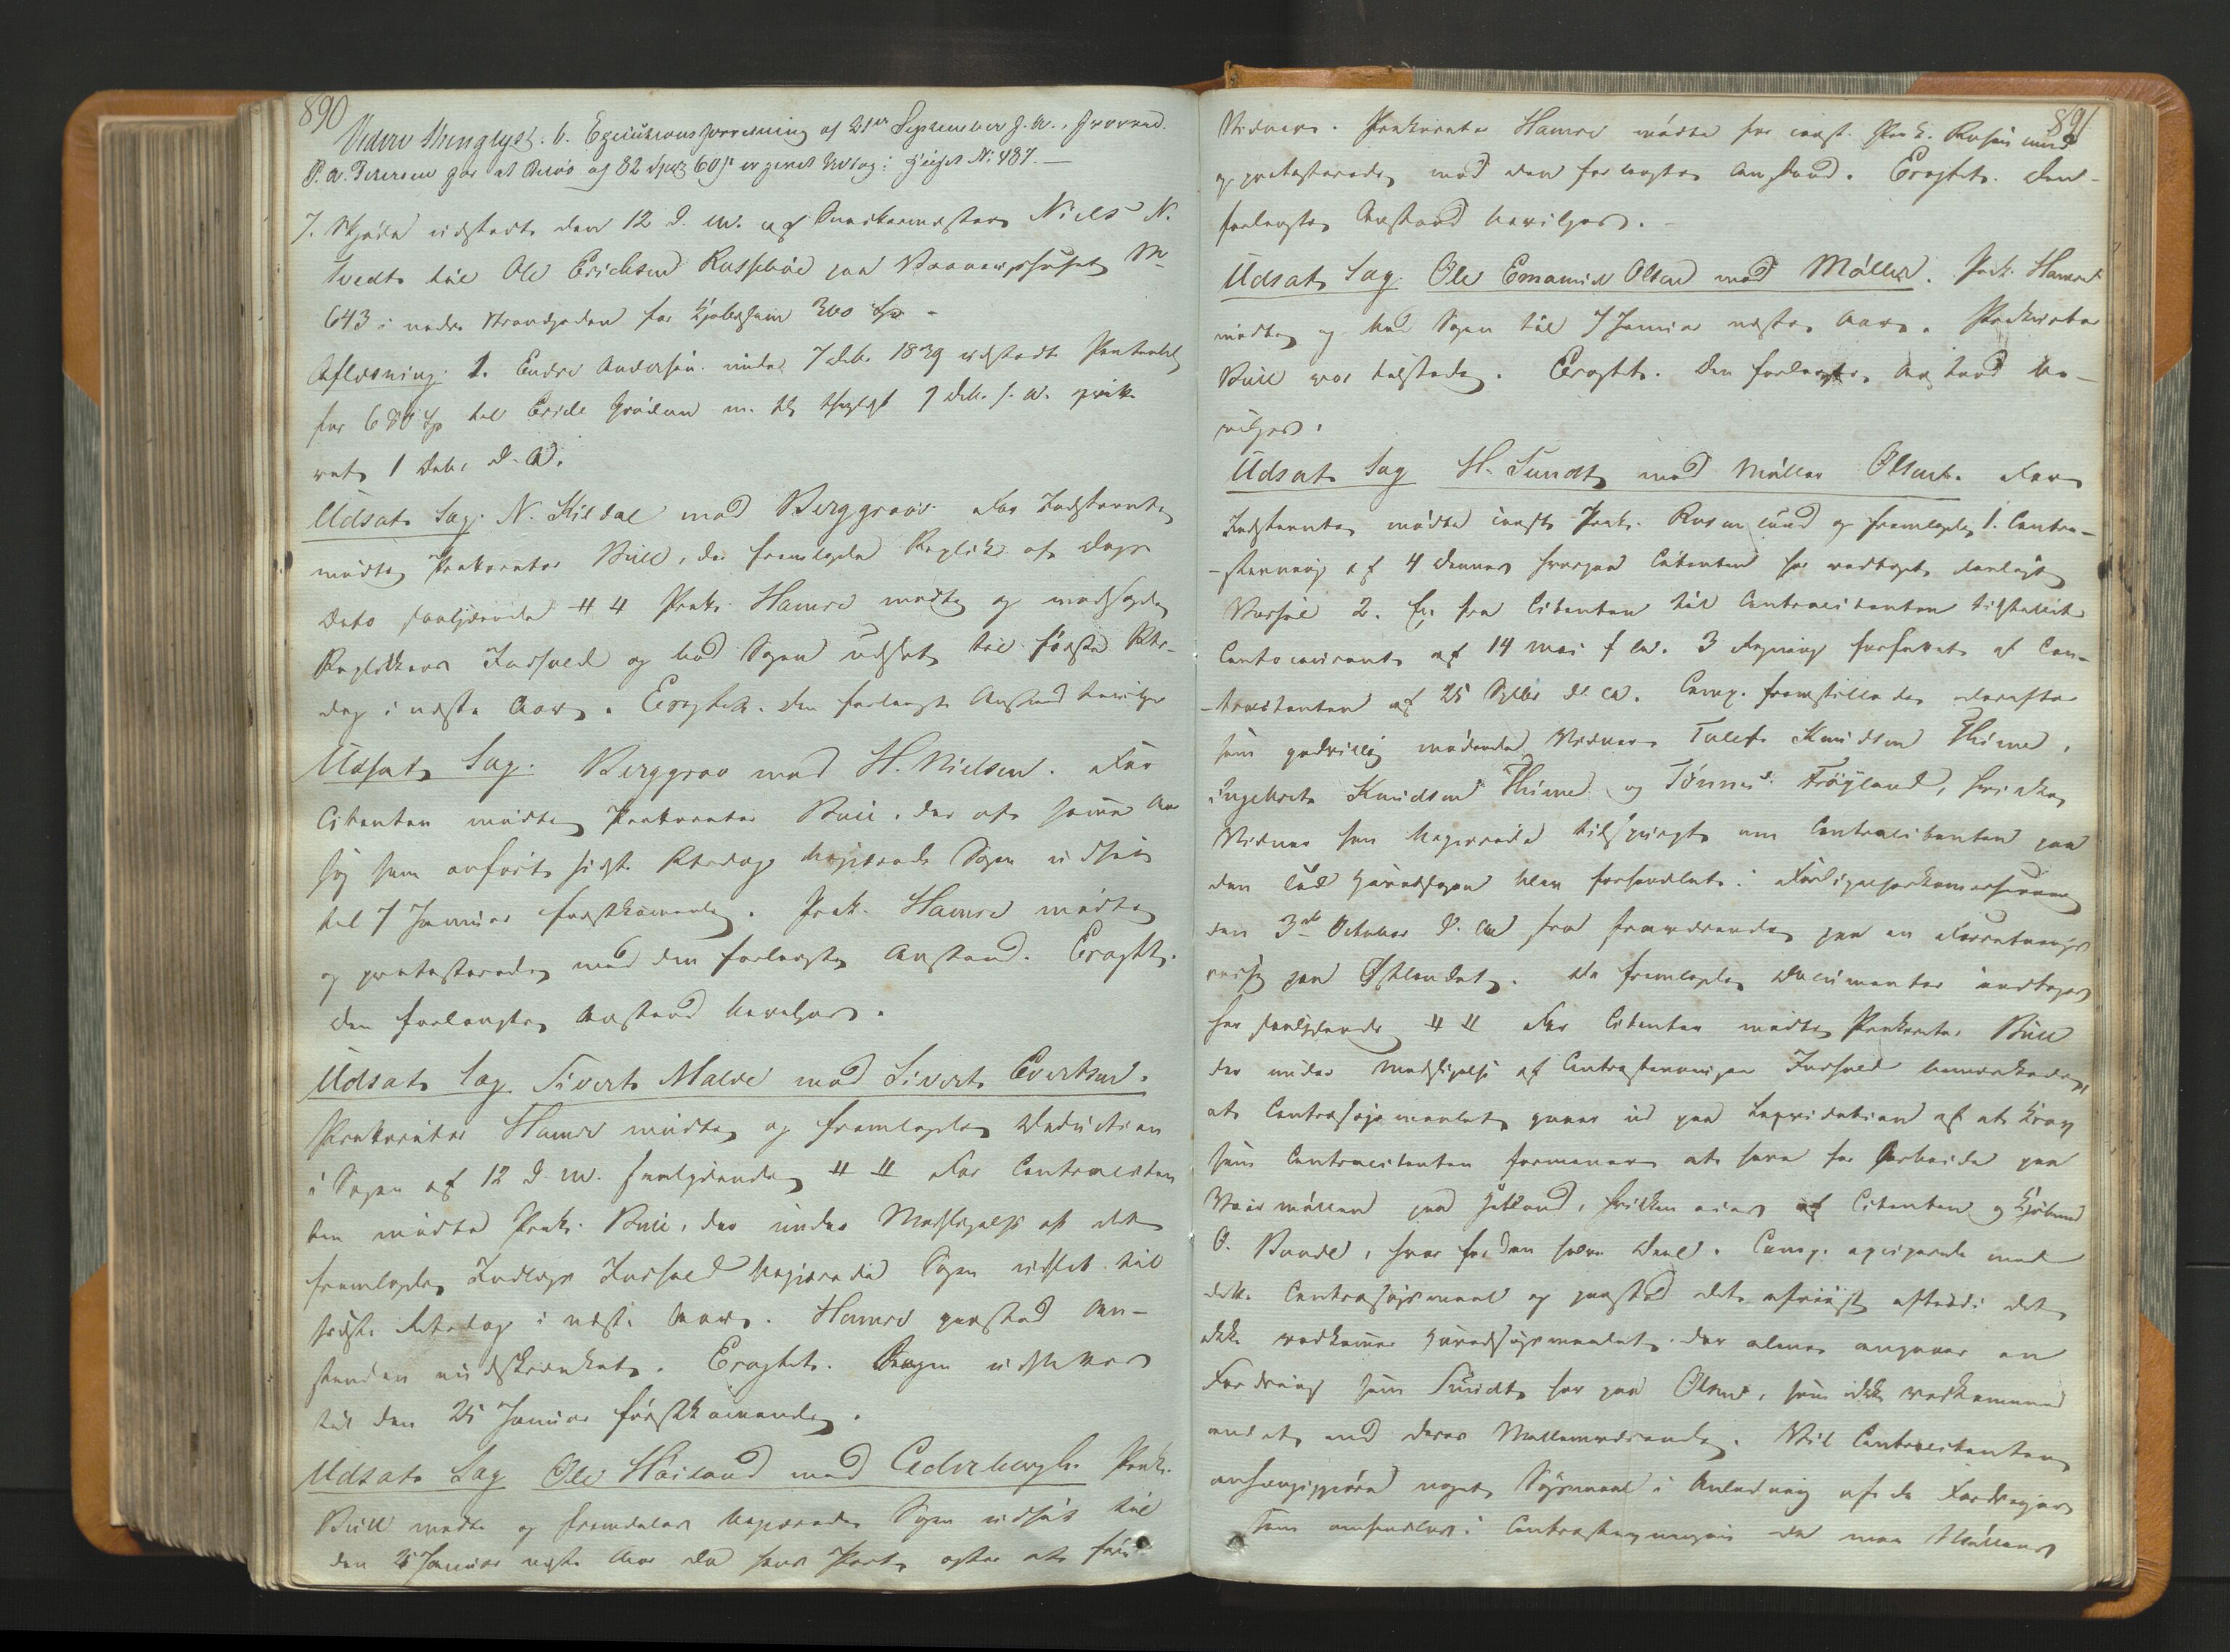 890
Videre thinglyst. 6. Executionsforretning af 21de September d. A., hvorved
P. A. Petersen for et Beløb af 82 Spd 60 s er givet Udlæg i Huset No. 487. —
7. Skjøde udstedt den 12 d. M. af Snedkermester Niels N.
Tvedt til Ole Erichsen Russebøe paa Vaaningshuset No
643 i nedre Strandgaden for Kjøbesum 300 Sp. -
Aflæsning: 1. Endre Andersens under 7 Debr 1839 udstedt Pantebrev
for 680 Sp til Erich Grødem m. fl. thinglyst 9 Debr s. A. qvitte
ret 1 Debr d. A.
Udsat Sag. N. Kildal mod Berggraav. For Indstevnte
mødte Prokurator Bull, der fremlagde Replik af Dags
Dato saalydende # 4 Prok. Hamre mødte og modsagde
Replikens Indhold og bad Sagen udsat til første Ret-
dag i næste Aar. Eragtet. Den forlangte Anstand bevilges
Udsat Sag. Berggrav mod H. Nielsen. For
Citanten mødte Prokurator Bull, der af samme Aar
sag som anført sidste Retsdag begjærede Sagen udsat
til 7 Januar førstkommende. Prok. Hamre mødte
og protesterede mod den forlangte Anstand. Eragtet.
Den forlangte Anstand bevilges.
Udsat Sag Sivert Malde mod Sivert Evertsen.
Prokurator Hamre mødte og fremlagde Deduction
i Sagen af 12 d. M. saalydende # # For Contracitan
ten mødte Prok. Bull, der under Modsigelse af det
fremlagte Indlægs Indhold begjærede Sagen udsat til
første Retsdag i næste Aar. Hamre paastod An-
standen indskrænket. Eragtet. Sagen udsættes
til den 25 Januar førstkommende.
Udsat Sag Ole Høiland med Cederbergh. Prok.
Bull mødte og fremdeles begjærede Sagen udsat til
den 25 Januar næste Aar da hans Part agter at føre
891
Vidner. Prokurator Hamre mødte for const. Prok. Rosenlund
og protesterede mod den forlangte Anstand. Eragtet. Den
forlangte Anstand bevilges. -
Udsat Sag. Ole Emanuel Olsen mod Møller. Prok. Hamre
mødte og bad Sagen til 7 Januar næste Aar. Prokurator
Bull var tilstede. Eragtet. Den forlangte Anstand be-
vilges.
Udsat Sag H. Sundt mod Møller Olsen. For
Indstevnte mødte const. Prok. Rosenlund og fremlagde 1. Contra-
-stevning af 4 dennes hvorpaa Citanten har vedtaget lovligt
Varsel 2. En fra Citanten til Contracitanten tilstillet
Contocourant af 14 Mai f. A. 3 Regning forfattet af Con-
-tracitanten af 25 Septbr d. A. Comp. fremstillede derefter
som godvillig mødende Vidner Tollef Knudsen Thime,
Ingebret Knudsen Thime og Tønnes Frøyland, hvilke
Vidner han begjærede tilspurgt om Contracitanten paa
den Tid Hovedsagen blev forhandlet i Forligelseskommissionen
den 3de October d. A. var fraværende paa en Forretnings
reise paa Østlandet. De fremlagte Documenter indtages
her saalydende # # For Citanten mødte Prokurator Bull
der under Modsigelse af Contrastevningens Indhold bemærkede,
at Contrasøgsmaalet gaaer ud paa Liqvidation af et Krav
som Contracitanten formener at have for Arbeide paa
Veirmøllen paa Jetland, hvilken eies af Citanten og Kjøbmd
O. Berdel, hver for den halve Deel. Comp. exciperede mod
dette Contrasøgsmaal og paastod det afviist efterdi det
ikke vedkommer Hovedsøgsmaalet der alene angaaer en
Fordring som Sundt har paa Olsen, som ikke vedkommer
andet end deres Mellemværende. Vil Contracitanten
anhængiggjøre noget Søgsmaal i Anledning af de Fordringer
som omhandles i Contrastevningen da maa Møllens